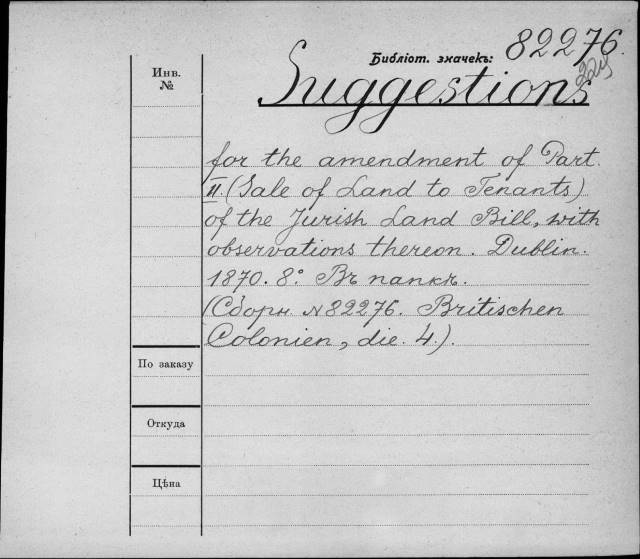 Библіот. значекъ: 82276.
Инв.
№
Suggestions
for the amendment of Part.
II. (Sale of Land to Tenants)
of the Jurish Land Bill, with
observations thereon. Dublin.
1870. 8° Въ папкѣ.
(Сборн. №82276. Britischen
Colonien, die. 4.).
По заказу
Откуда
Цѣна